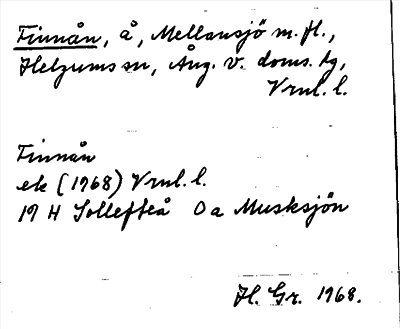 Finnån, å, Mellansjö m. fl.,
Helgums sn, Ång. v. doms. tg,
Vrnl. l.
Finnån
ek (1968) Vrnl. l.
19 H Sollefteå 0 a Musksjön
H. Gr. 1968.